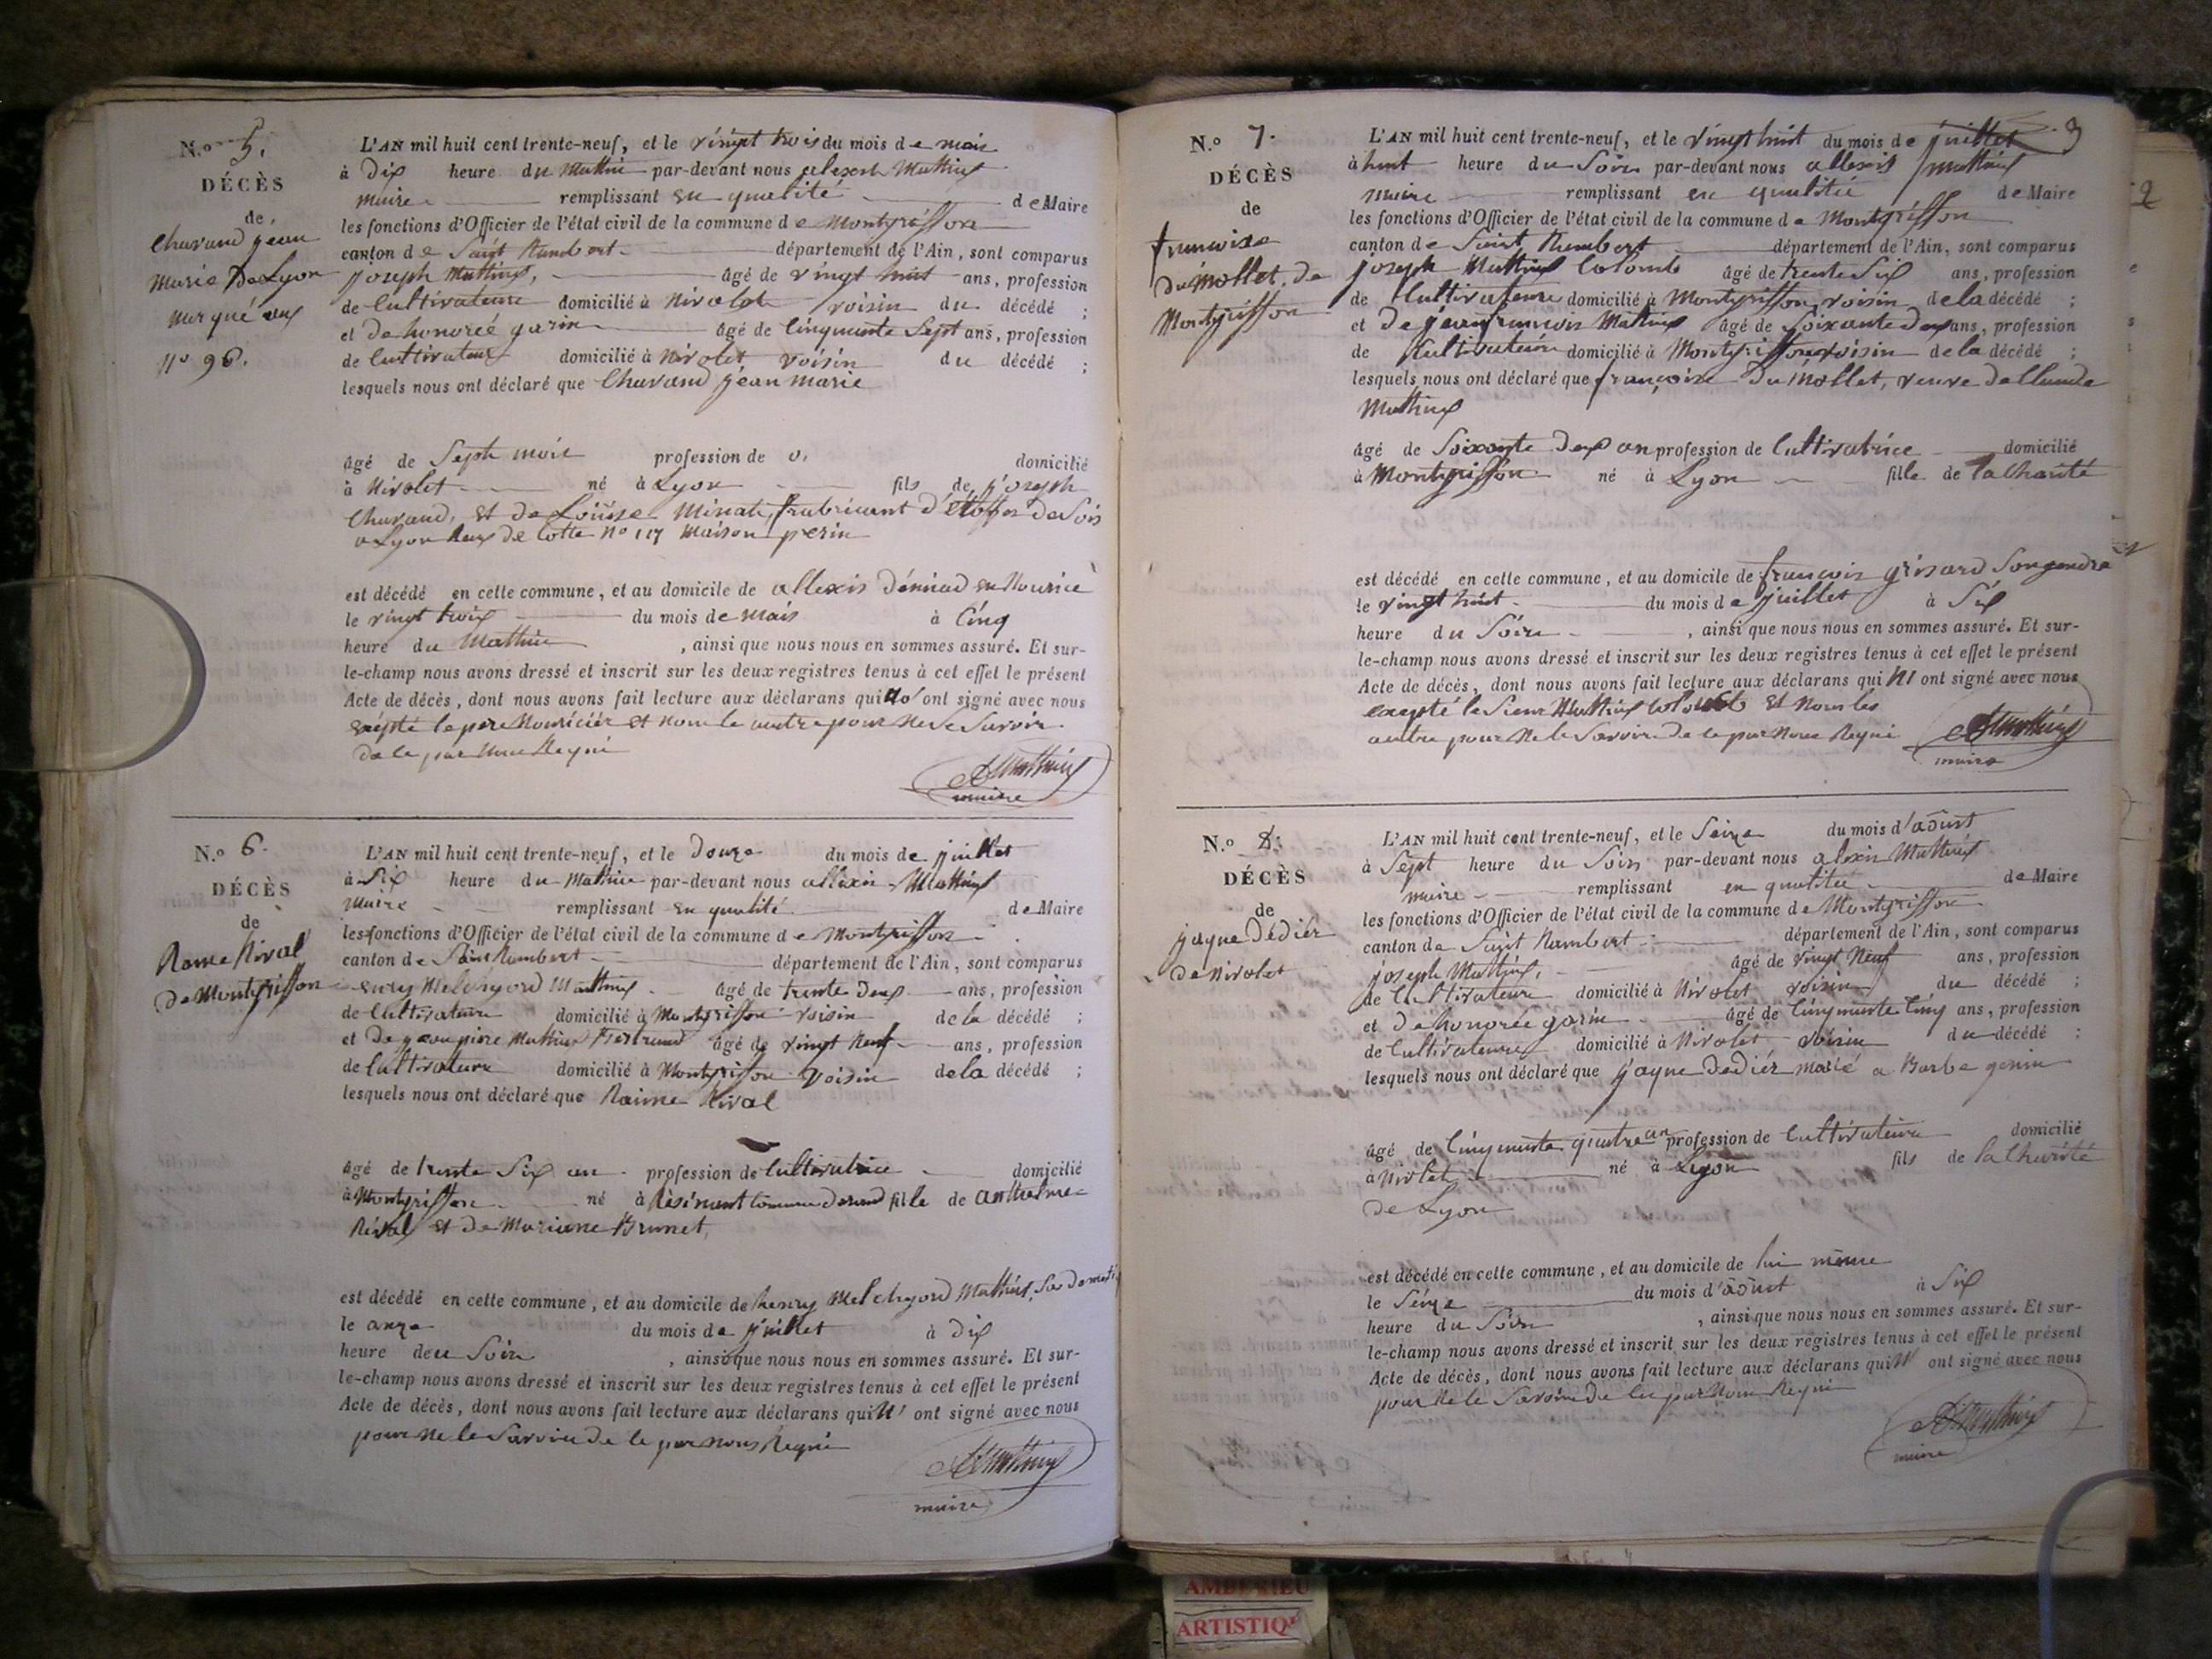 N.o 5.
DÉCÈS
de
Chavand jean
marie De Lyon
merqué aux
no 96.
L'AN mil huit cent trente-neuf, et le vingt trois du mois de mais
à Dix heure du Mattin par-devant nous alexis Mathieux
maire remplissant en qualité de Maire
les fonctions d'Officier de l'état civil de la commune de Montgriffon
canton de Saint Rambert département de l'Ain, sont comparus
joseph Mathieux, âgé de vingt huit ans, profession
de Cultivateure domicilié à Nivolet voisin du décédé ;
et De honoreé garin âgé de Cinquante Sept ans, profession
de Cultivateur domicilié à Nivolet voisin du décédé ;
lesquels nous ont déclaré que Chavand jean marie
âgé de Seph mois profession de o, domicilié
à Nivolet né à Lyon fils de joseph
Chavand, et de Louise Minati, frabricant d'étoffes de Sois
a Lyon Rue De Cotte No 117 Maison perin
est décédé en cette commune, et au domicile de allexis en Nourice
le vingt trois du mois de mais à Cinq
heure du Mathin , ainsi que nous nous en sommes assuré. Et sur-
le-champ nous avons dressé et inscrit sur les deux registres tenus à cet effet le présent
Acte de décès, dont nous avons fait lecture aux déclarans qui ont signé avec nous
exépté le pere Nouriciér et nom le autre pour Ne Se Savoir
de le par Nous
AMathieux
maire
N.o 6.
DÉCÈS
de
Rame Rival
De Montgriffon
L'AN mil huit cent trente-neuf, et le Douze du mois de juillet
à Six heure du Mathin par-devant nous allexis Mathieux
Maire remplissant en qualité de Maire
les fonctions d'Officier de l'état civil de la commune de Montgriffon
canton de Saint Rambert département de l'Ain, sont comparus
Melchyord Mathieux âgé de trente Deux ans, profession
de Cultivateure domicilié à Montgriffon voisin de la décédé ;
et De jeanpiere Mathieux Bertrand âgé de vingt Neuf ans, profession
de Cultivateure domicilié à Montgriffon voisin de la décédé ;
lesquels nous ont déclaré que Raime Rival
âgé de trente Six an profession de Cultivatrice domicilié
à Montgriffon né à Résinant Commune fille de anthelme
Rival et De Mariane Brunet,
est décédé en cette commune, et au domicile de henry Melchyord Mathieux,
le onze du mois de juillet à Dix
heure deu Soire , ainsi que nous nous en sommes assuré. Et sur-
le-champ nous avons dressé et inscrit sur les deux registres tenus à cet effet le présent
Acte de décès, dont nous avons fait lecture aux déclarans qui N' ont signé avec nous
pour Ne le Savoire De le par nous
AMathieux
maire
9
N.o 7.
DÉCÈS
de
francoise
Du Mollet. De
Montgriffon
L'AN mil huit cent trente-neuf, et le vingt huit du mois de juillet
à huit heure du Soire par-devant nous allexis Mathieux
Maire remplissant en qualitée de Maire
les fonctions d'Officier de l'état civil de la commune de Montgriffon
canton de Saint Rembert département de l'Ain, sont comparus
joseph Mathieux Colomb âgé de trente Six ans, profession
de Cultivateure domicilié à Montgriffon voisin de la décédé ;
et De jean francois Mathieux âgé de Soixante deux ans, profession
de Cultivateure domicilié à Montgriffon voisin de la décédé ;
lesquels nous ont déclaré que françoise Du Mollet, veuve De Claude
Mathieux
âgé de Soixante Deux an profession de Cultivatrice domicilié
à Montgriffon né à Lyon fille de la Charité
est décédé en cette commune, et au domicile de francois grisard Son gendre
le vingt huit du mois de juillet à Six
heure du Soire , ainsi que nous nous en sommes assuré. Et sur-
le-champ nous avons dressé et inscrit sur les deux registres tenus à cet effet le présent
Acte de décès, dont nous avons fait lecture aux déclarans qui N' ont signé avec nous
exepté le Sieur Mathieux Colomb et nom les
autre pour Ne le Savoire De le par Nous
AMathieux
maire
N.o 8.
DÉCÈS
de
jayne Dediér
de Nivolet
L'AN mil huit cent trente-neuf, et le Seize du mois d'aoust
à Sept heure du Soire par-devant nous alexis Mathieux
maire remplissant en qualitée de Maire
les fonctions d'Officier de l'état civil de la commune de Montgriffon
canton de Saint Rambert département de l'Ain, sont comparus
joseph Mathieux, âgé de vingt Neuf ans, profession
de Cultivateure domicilié à Nivolet voisin du décédé ;
et De honorée garin âgé de Cinquante Cinq ans, profession
de Cultivateure domicilié à Nivolet voisin du décédé ;
lesquels nous ont déclaré que jayne Dediér marié a Barbe genin
âgé de Cinquante quatre an profession de Cultivateure domicilié
à Nivolet né à Lyon fils de la Charité
de Lyon
est décédé en cette commune, et au domicile de lui même
le Séize du mois d'aoust à Six
heure du Soire , ainsi que nous nous en sommes assuré. Et sur-
le-champ nous avons dressé et inscrit sur les deux registres tenus à cet effet le présent
Acte de décès, dont nous avons fait lecture aux déclarans qui N' ont signé avec nous
pour Ne le Savoire De le par Nous
AMathieux
maire
2
AMBERIEU
ARTISTIQ